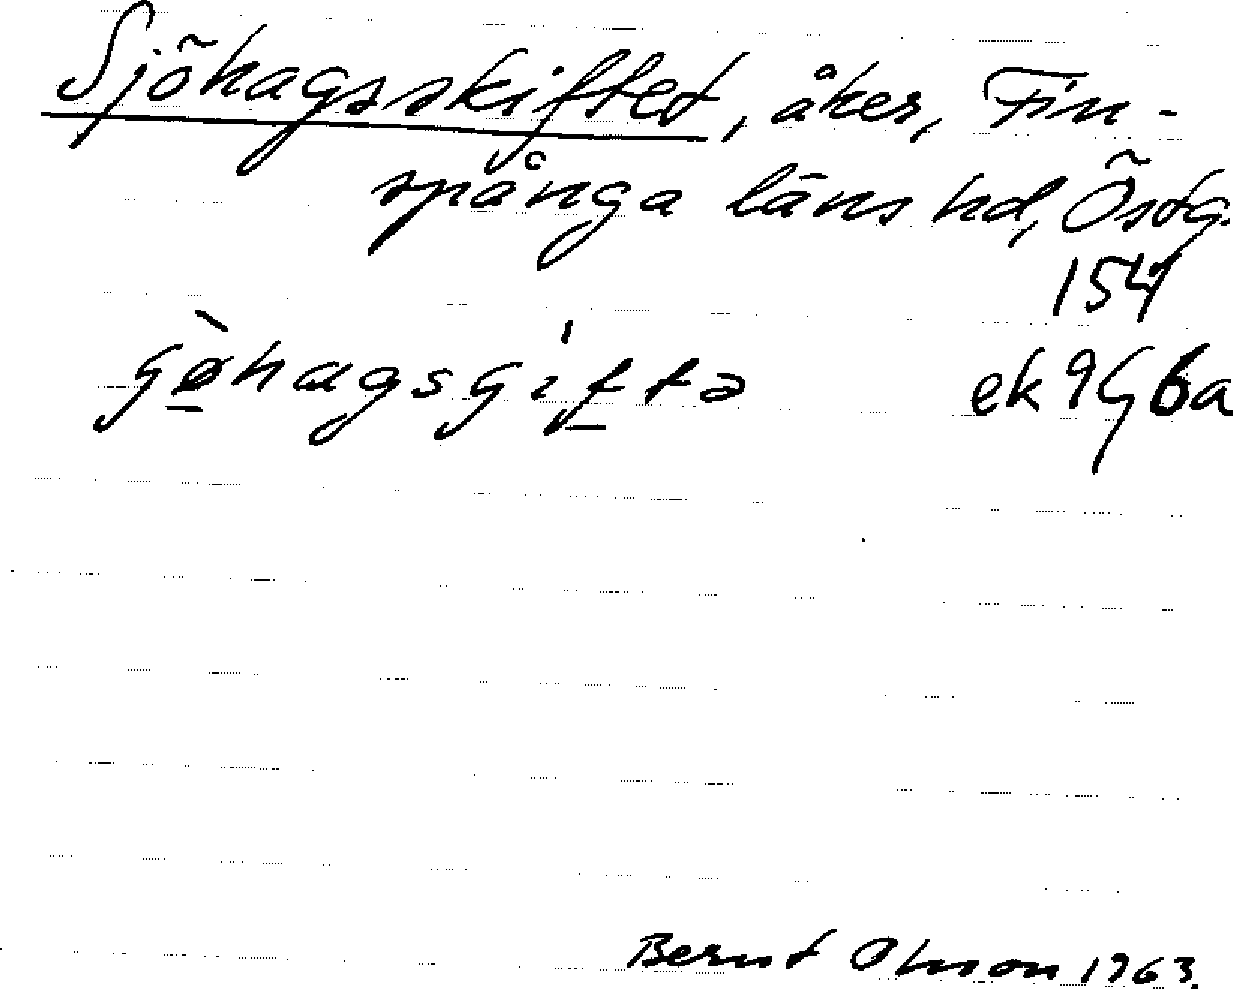 Sjöhagsskiftet, åker, Fin-
spånga läns hd, Östg.
154
gøhagsgifta ek 9G6a
Bernt Olsson 1963.